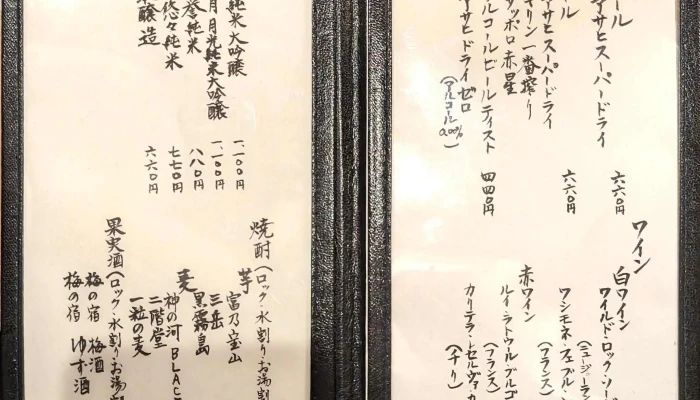 ール
アサヒスーパードライ
六六〇円
ール
アサヒスーパードライ
キリン一番搾り
サッポロ赤星
六六〇円
ルコールビールテイスト
アサヒドライゼロ
(アルコール0.00%)
四四〇円
ワイン
白ワイン
ワイルド・ロック・ソー
(ニュージーラン
ワシモネ・フェブル・
(フランス)
赤ワイン
ルイ・ラトゥール・ブルゴ
(フランス)
カリテラ・セルヴァ・カ
(チリ)
純米大吟醸
一、一〇〇円
月光純米大吟醸
一、一〇〇円
誉純米
八八〇円
悠々純米
七七〇円
醸造
六六〇円
焼酎(ロック・水割り・お湯割
芋
富乃宝山
三岳
黒霧島
麦
神の河BLAC
二階堂
一粒の麦
果実酒(ロック・水割り・お湯割
梅の宿 梅酒
梅の宿 ゆず酒